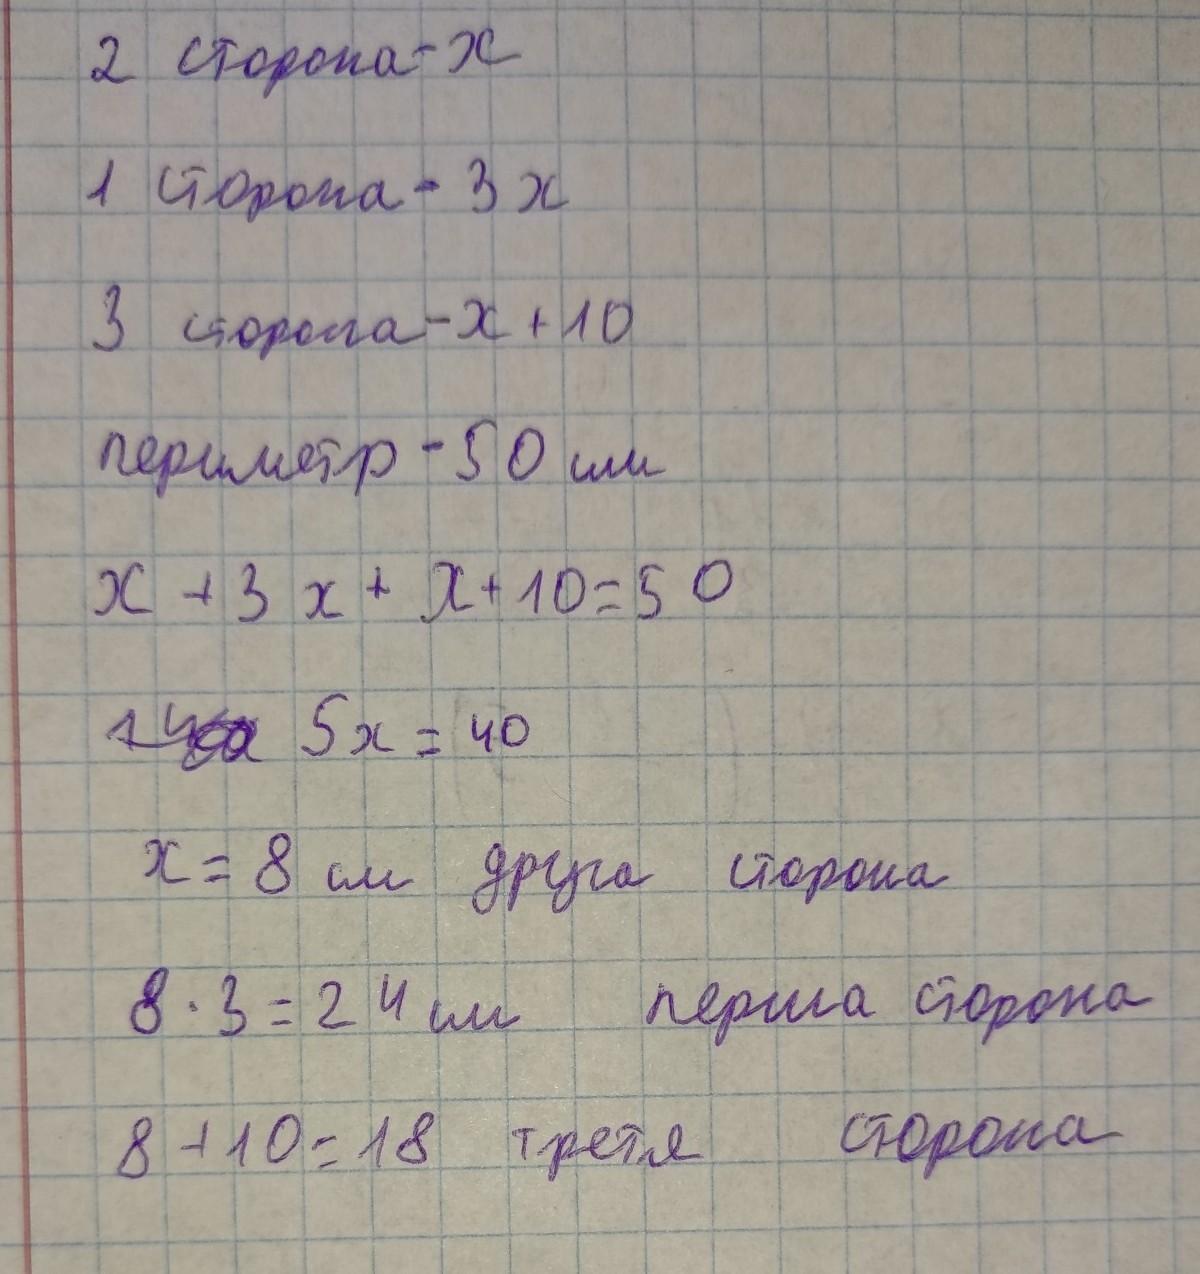 2 сторона - x
1 сторона - 3x
3 сторона - x + 10
периметр - 50 см
x + 3x + x + 10 = 50
5x = 40
x = 8 см друга сторона
8 · 3 = 24 см перша сторона
8 + 10 = 18 третя сторона